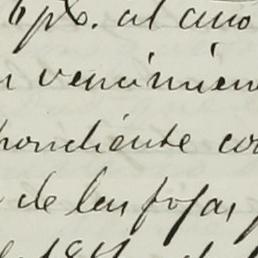 6 p%. al año
vencimien
pondiente co
de las fojas,